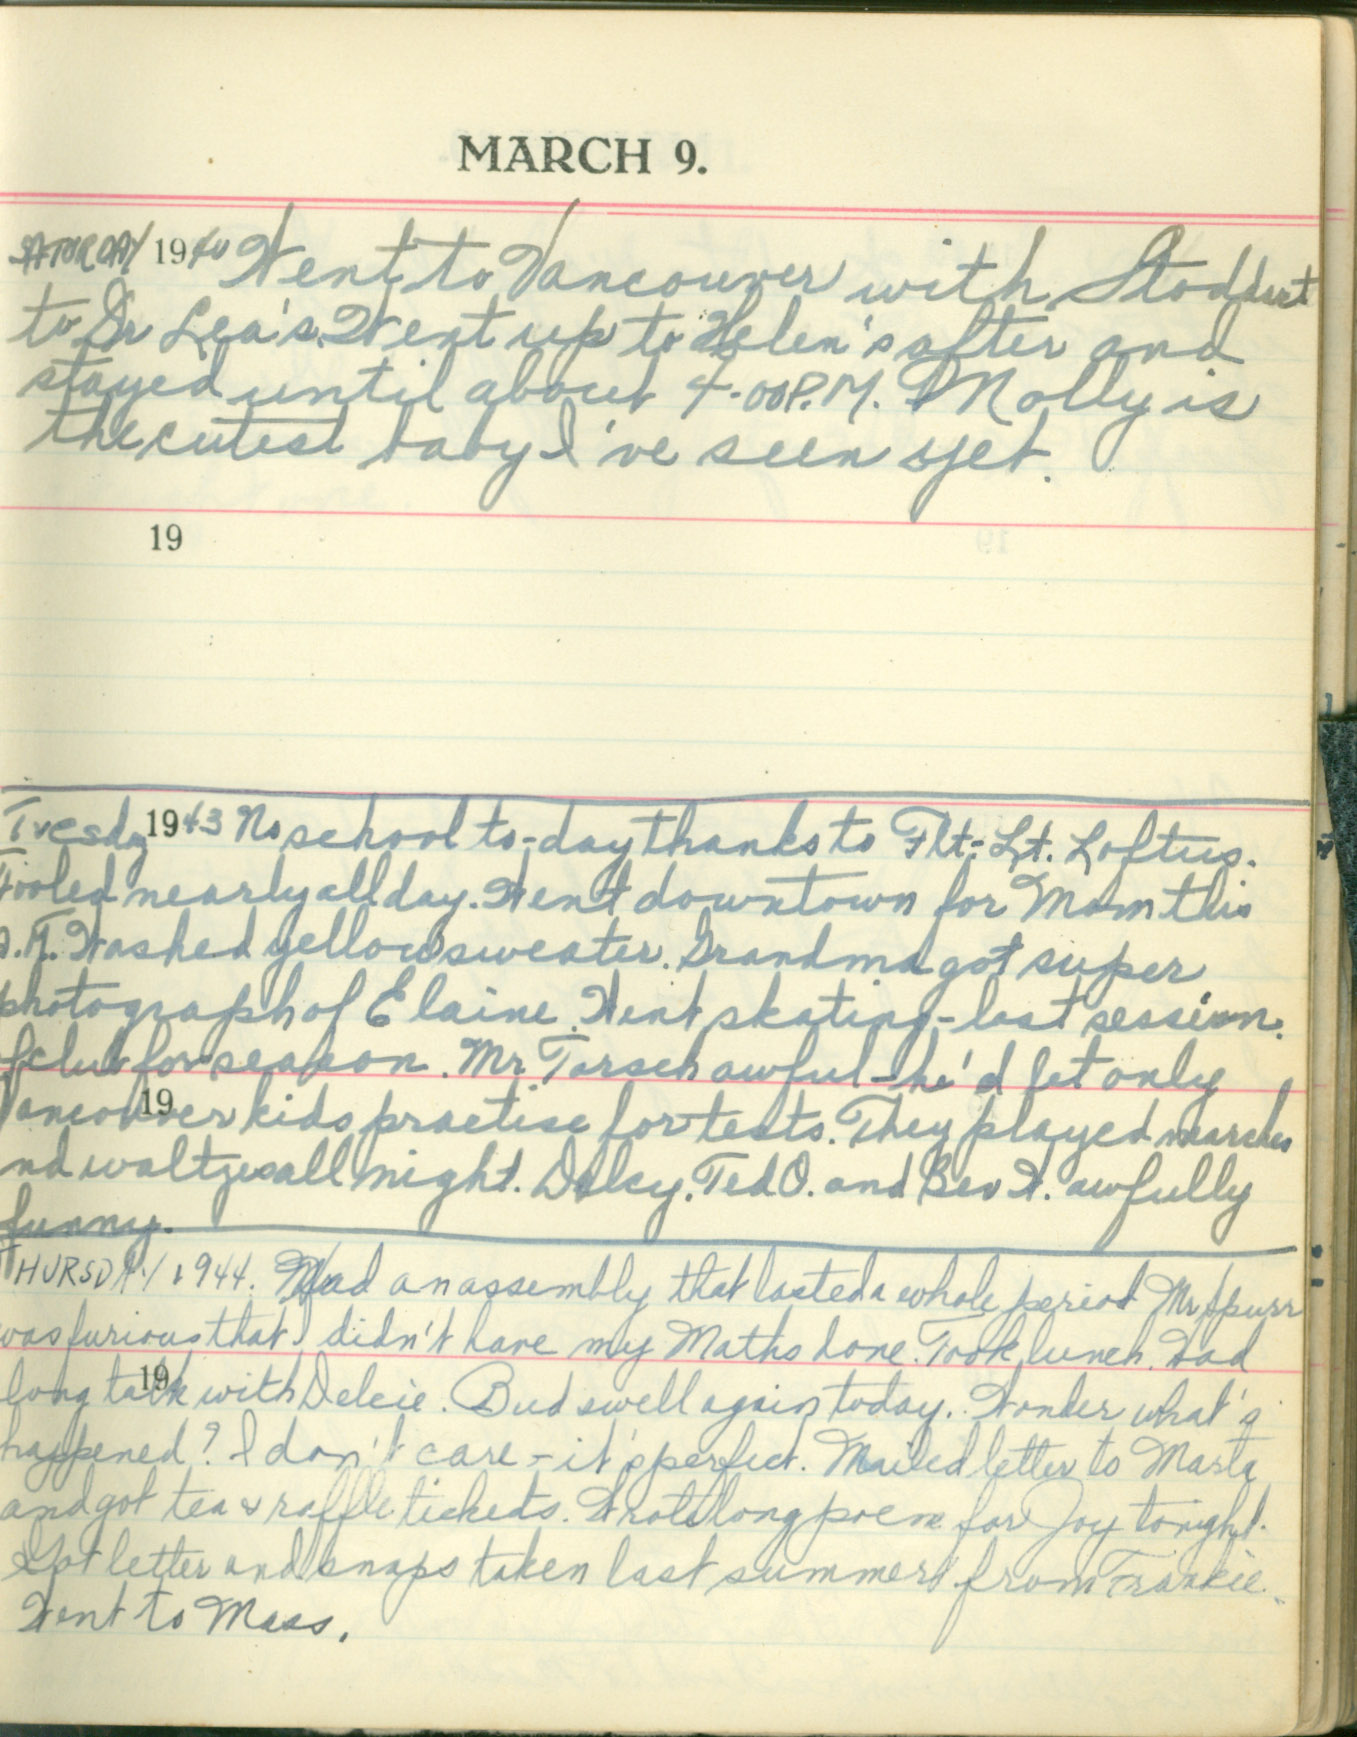 MARCH 9.
SATURDAY 1940 Went to Vancouver with Stoddart
to Dr Lea's. Went up to Helen's after and
stayed until about 4.00 P.M. Molly is
the cutest baby I've seen yet.
19
Tuesday 1943 No school to-day thanks to Flt.-Lt. Loftus.
Fooled nearly all day. Went downtown for Mom this
A.M. Washed yellow sweater. Grandma got super
photograph of Elaine. Went skating - last session
of club for season. Mr. Torsch awful - he'd let only
19
Vancouver kids practise for tests. They played marches
and waltzes all night. Delcy, Ted O. and Bev W. awfully
funny.
THURSDAY 1944. Had an assembly that lasted a whole period Mr Spurr
was furious that I didn't have my Maths done. Took lunch. Had
19
long talk with Delcie. Bud swell again today. Wonder what's
happened? I don't care - it's perfect. Mailed letter to Marta
and got tea & raffle tickets. Wrote long poem for Joy tonight.
Got letter and snaps taken last summer from Frankie.
Went to Mass.